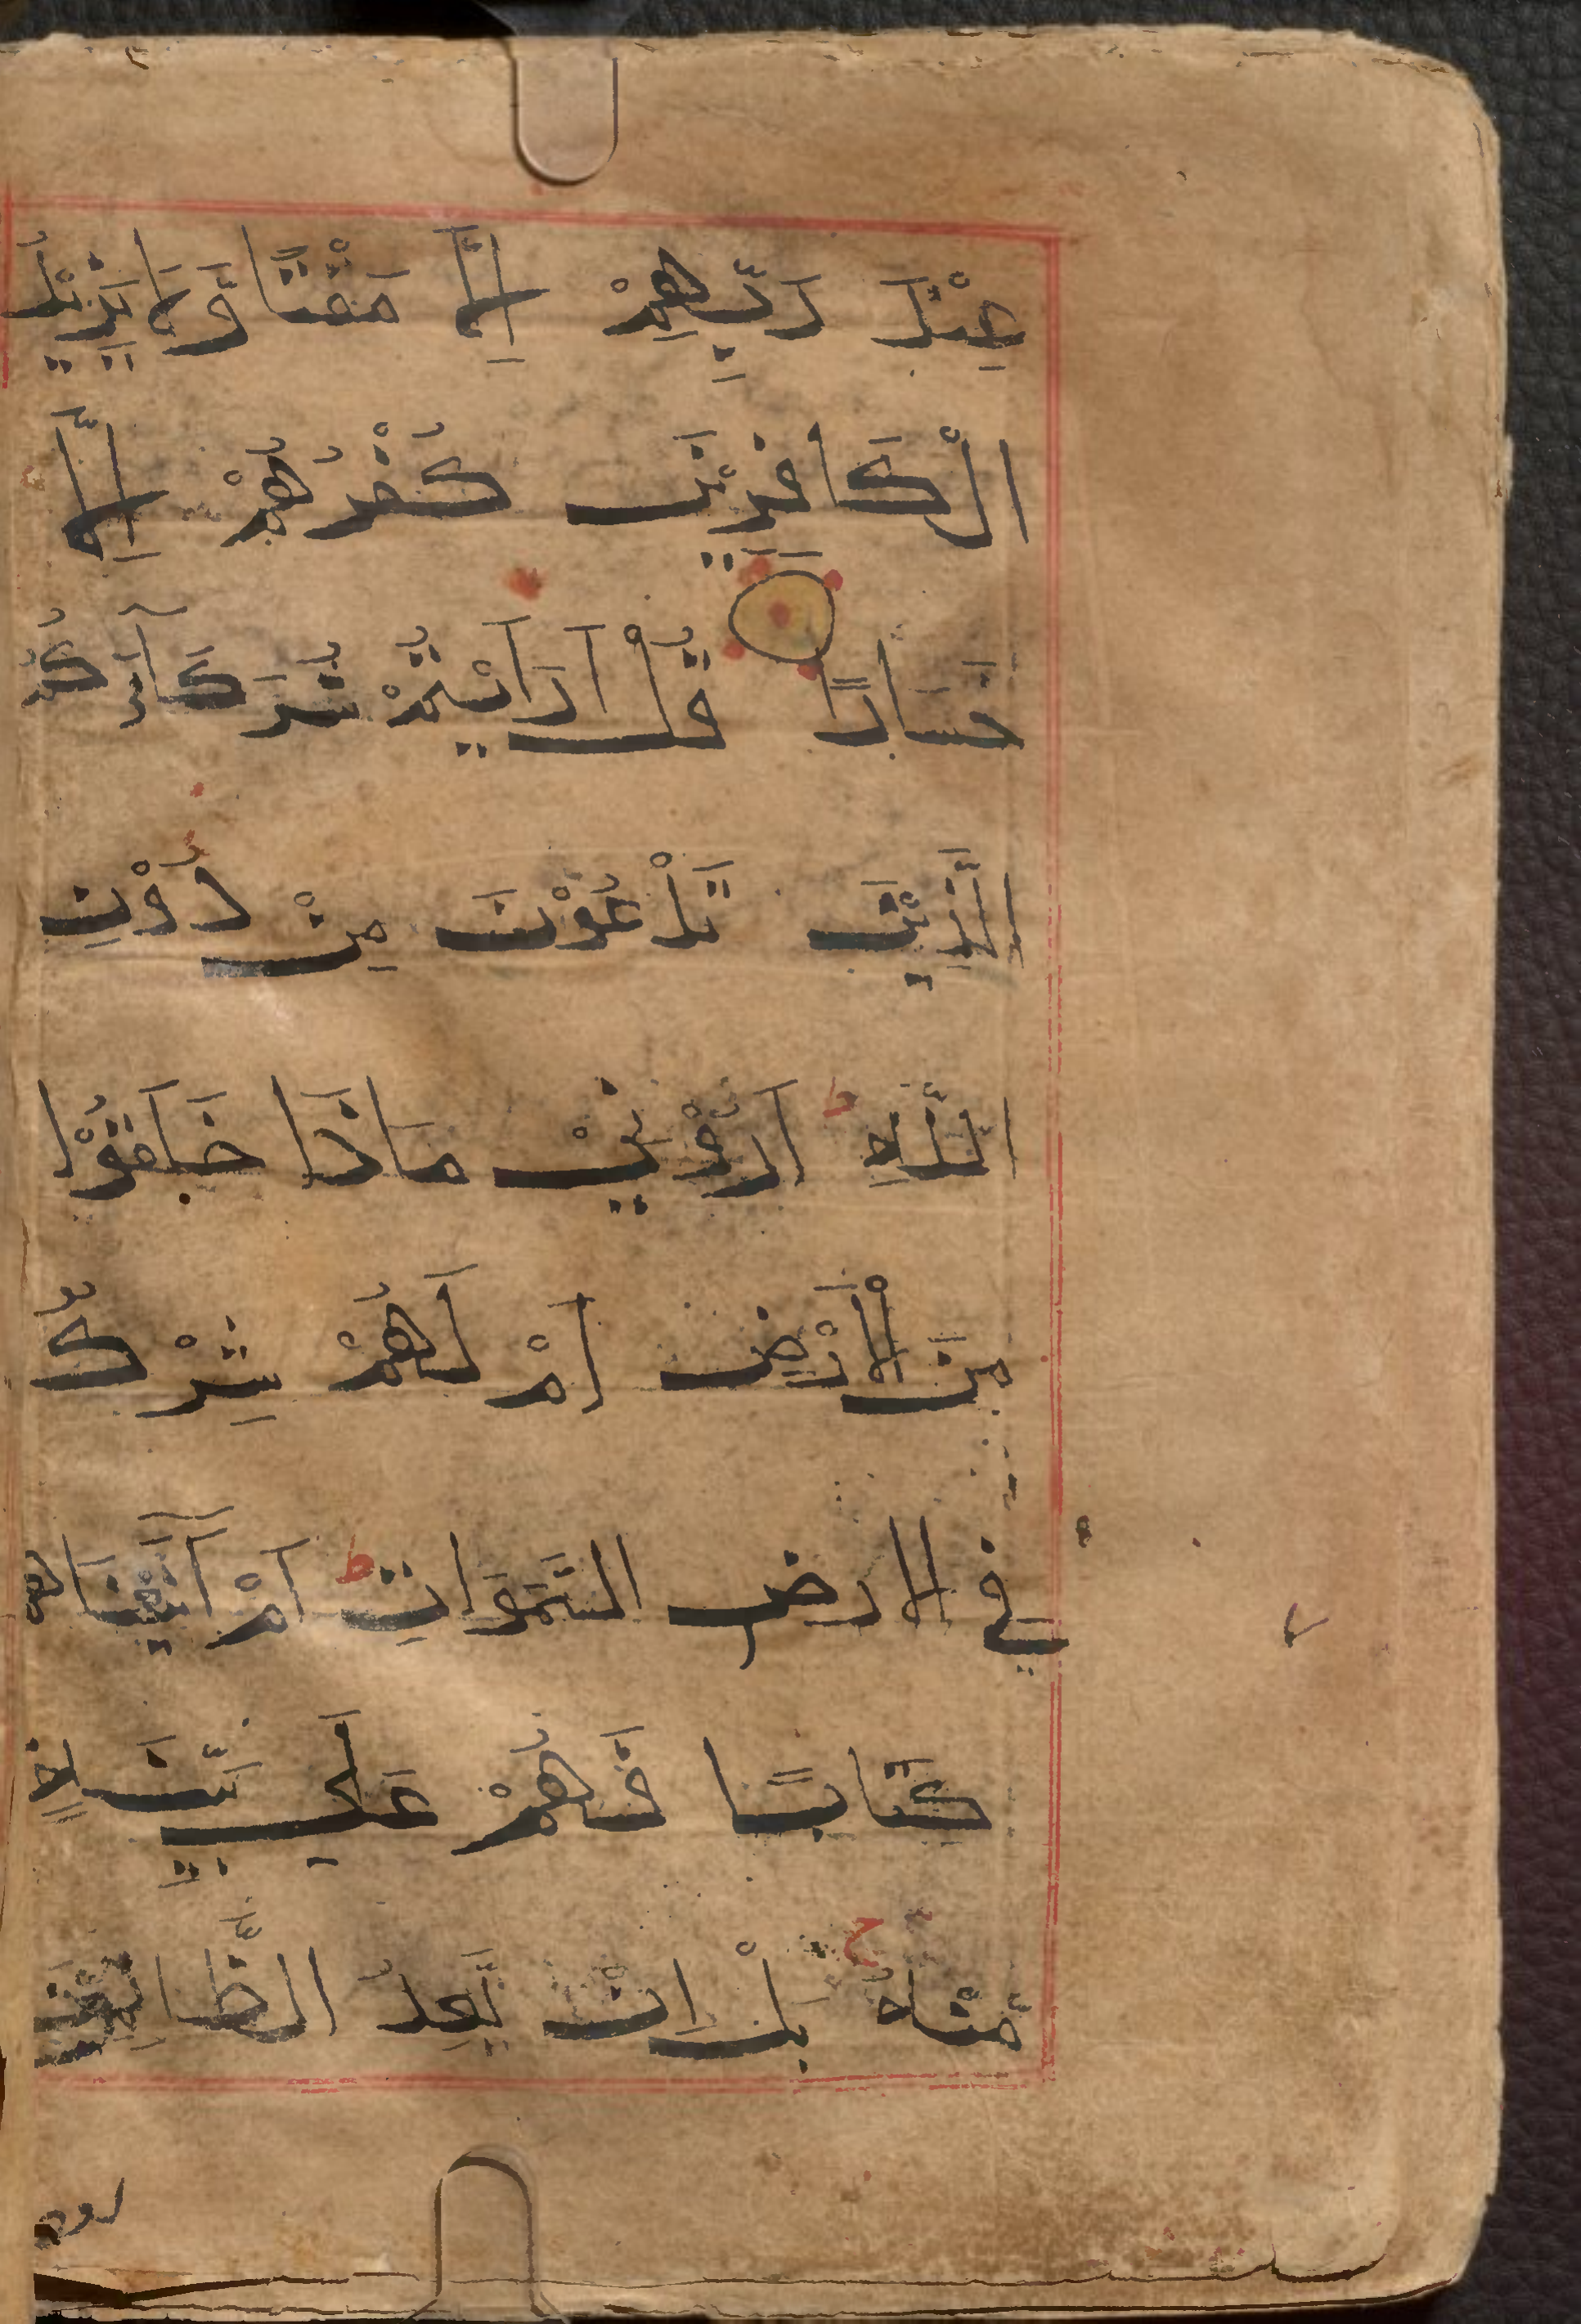 عِنْدَ رَبِّهِمْ اِلَّا مَقْتًا وَّمَا يَزِيْدُ
الْكَافِرِيْنَ كُفْرُهُمْ اِلَّا
خَسَارًا قُلْ اَرَاَيْتُمْ شُرَكَآءَكُمُ
الَّذِيْنَ تَدْعُوْنَ مِنْ دُوْنِ
اللّٰهِ ط اَرُوْنِيْ مَاذَا خَلَقُوْا
مِنَ الْاَرْضِ اَمْ لَهُمْ شِرْكٌ
في الارض السَّمَوَاتِ ط اَمْ آتَيْنَاهم
كِتَابًا فَهُمْ عَلَي بَيِّنَةٍ
مِّنْهُ ج بَلْ اِنْ يَّعِدُ الظَّالِمُوْنَ